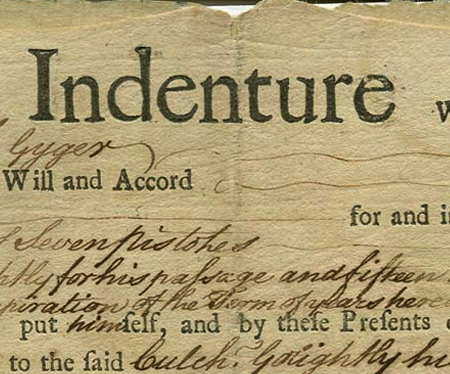 Indenture
Gyger
Will and Accord
for and i
Seven pistoles
htly for his paſsage and fifteen
piration of the Term of years here
put himſelf, and by theſe Preſents
to the ſaid Culch: Golightly hi